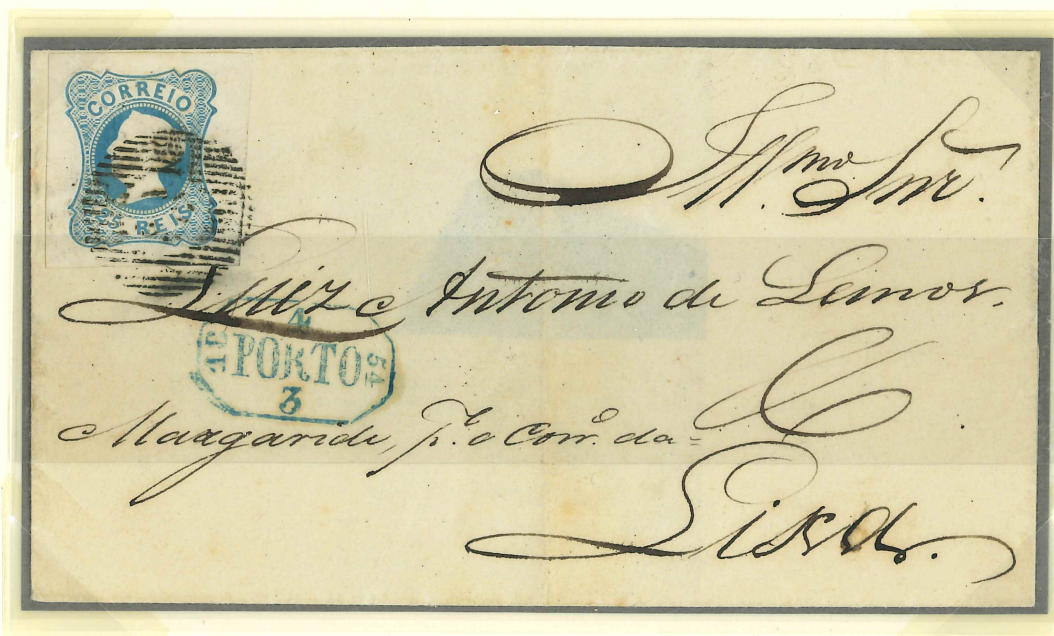 CORREIO
25 REIS
Illmo Snr.
Luiz Antonio de Lemos.
4
PORTO
54
3
Margaride, p. o Corro. da =
Lixa.